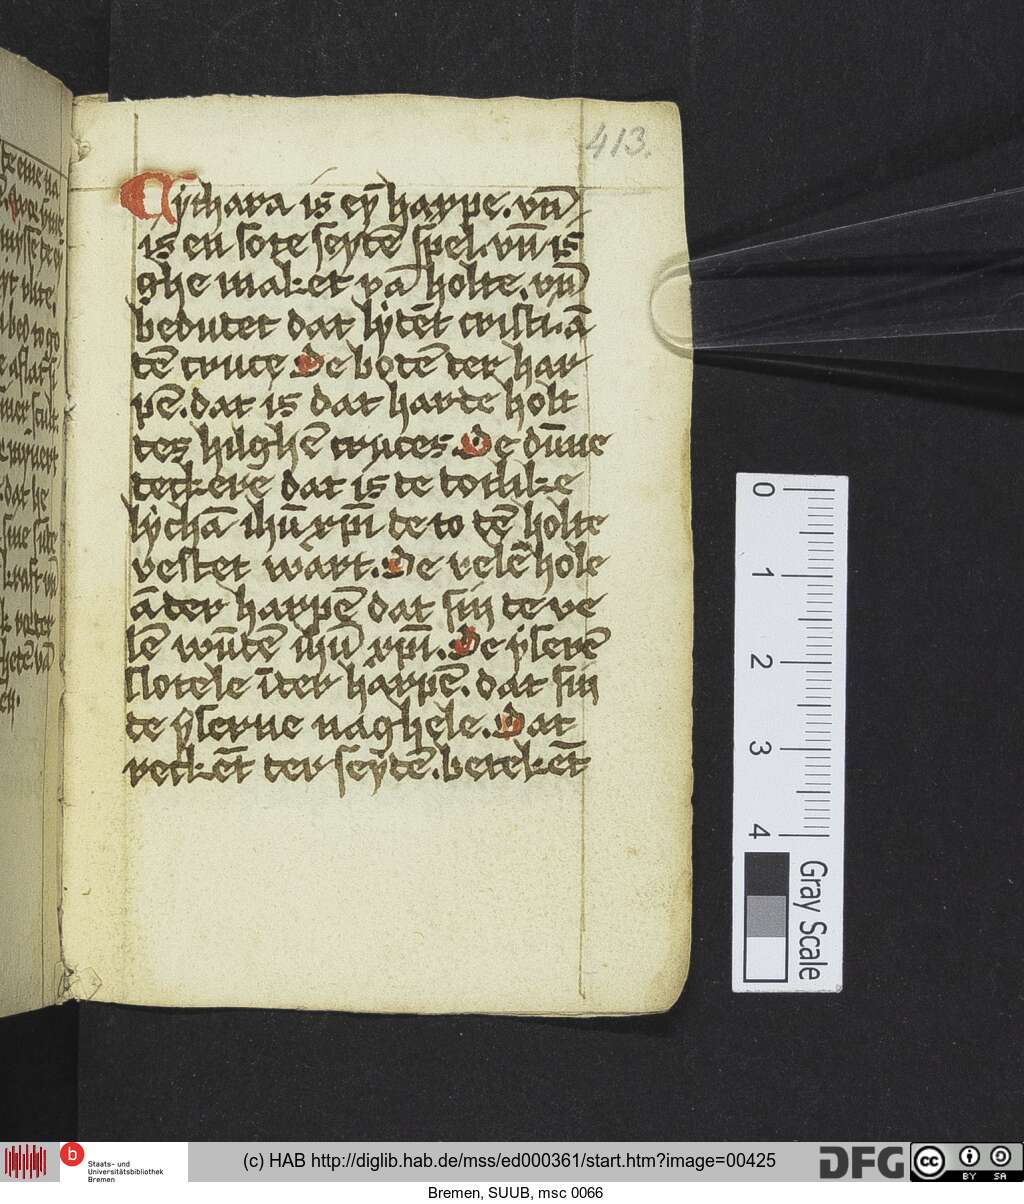 413.
Cÿthara is eÿ̄ harpe. vn̄
is en sote seÿtē spel. vn̄ is
ghe maket vā holte. vn̄
bedutet dat lÿtēt cristi. ā
tē cruce De botē ter har
pē. dat is dat harde holt
tes hilghē cruces. De dūne
teckerē dat is te totlike
lÿchā ihū xp̄i te to tē holte
vestet wart. De velē hole
ā ter harpē dat sin te ve
lē wūtē ihū xp̄i. De ÿserē
slotele ī ter harpē. dat sin
te ÿserne naghele. Dat
reckēt ter seÿtē. betekēt
0
1
2
3
4
Gray Scale
b
Staats- und
Universitätsbibliothek
Bremen
(c) HAB http://diglib.hab.de/mss/ed000361/start.htm?image=00425
DFG
cc BY SA
Bremen, SUUB, msc 0066